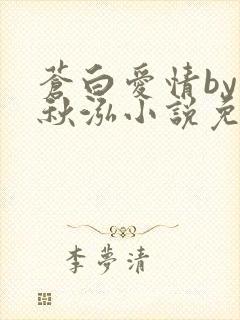 蒼白愛情by
秋泓小說免
李夢清